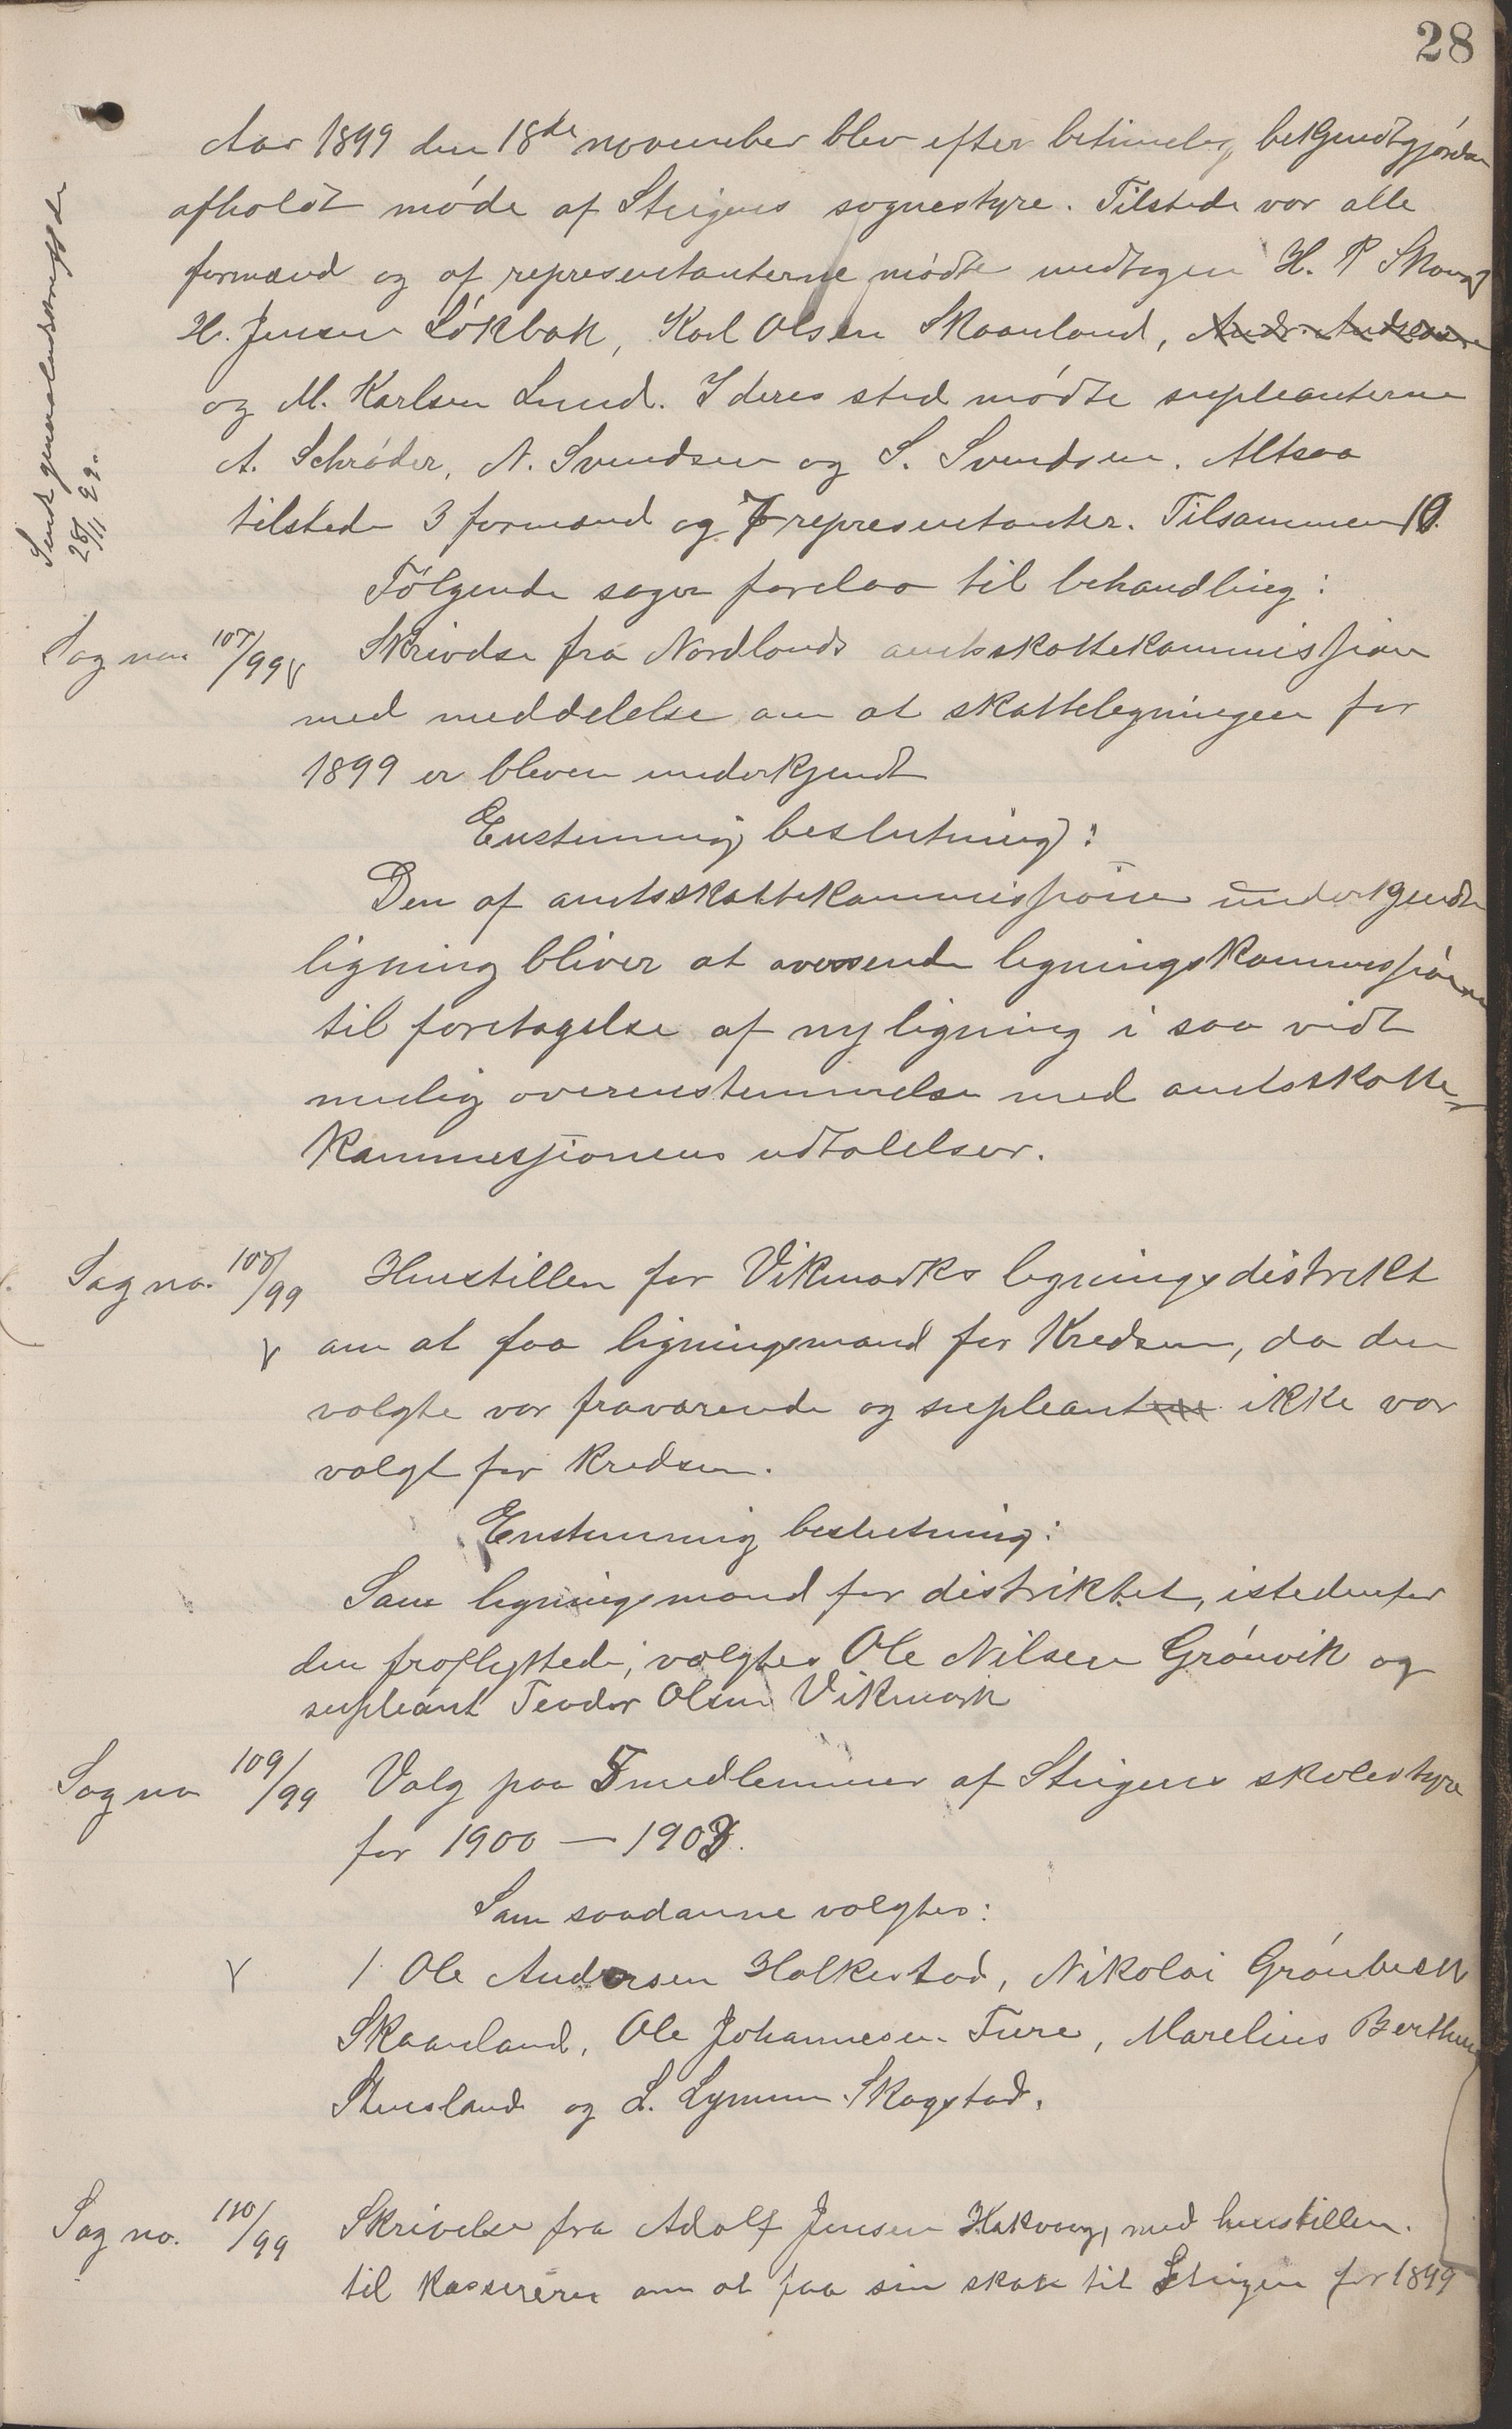 28
Aar 1899 den 18de november blev efter betimelig bekjendtgjørelse
afholdt møde af Steigens sognestyre. Tilstede var alle
formænd og af representanterne mødte undtagen H. P Skou
H. Jensen Løkbak, Karl Olsen Skaanland, Andr. Andreasen
og M. Karlsen Lund. I deres sted mødte supleanterne
A. Schrøder, N. Svendsen og S. Svendsen. Altsaa
tilstede 3 formænd og 7 representanter. Tilsammen 10.
Følgende sager forelaa til behandling:
Sendt
25/11 99.
Sag no. 107/99 Skrivelse fra Nordlands amtsskattekommissjon
med meddelelse om at skatteligningen for
1899 er bleven underkjendt
Enstemmig beslutning:
Den af amtsskattekommissjonen underkjendte
ligning bliver at oversende ligningskommissjonen
til foretagelse af ny ligning i saa vidt
mulig overenstemmelse med amtsskatte-
kommissjonens udtalelser.
Sag no. 108/99 Henstillen for Vikmarks ligningsdistrikt
om at faa ligningsmand for Kredsen, da den
valgte var fraværende og supleant ikke var
valgt for kredsen.
Enstemmig beslutning:
Som ligningsmand for distriktet, istedenfor
den fraflyttede, valgtes Ole Nilsen Grønvik og
supleant Teodor Olsen Vikmark
Sag no 109/99 Valg paa 5 medlemmer af Steigens skolestyre
for 1900 — 1903.
Som saadanne valgtes:
1 Ole Andersen Holkestad, Nikolai Grønbeck
Skaanland, Ole Johannesen Fure, Marelius Bertheus
Stensland og L. Lynum Skagstad.
Sag no. 110/99 Skrivelse fra Adolf Jensen Hakvaag, med henstillen.
til kassereren om at faa sin skat til Steigen for 1899